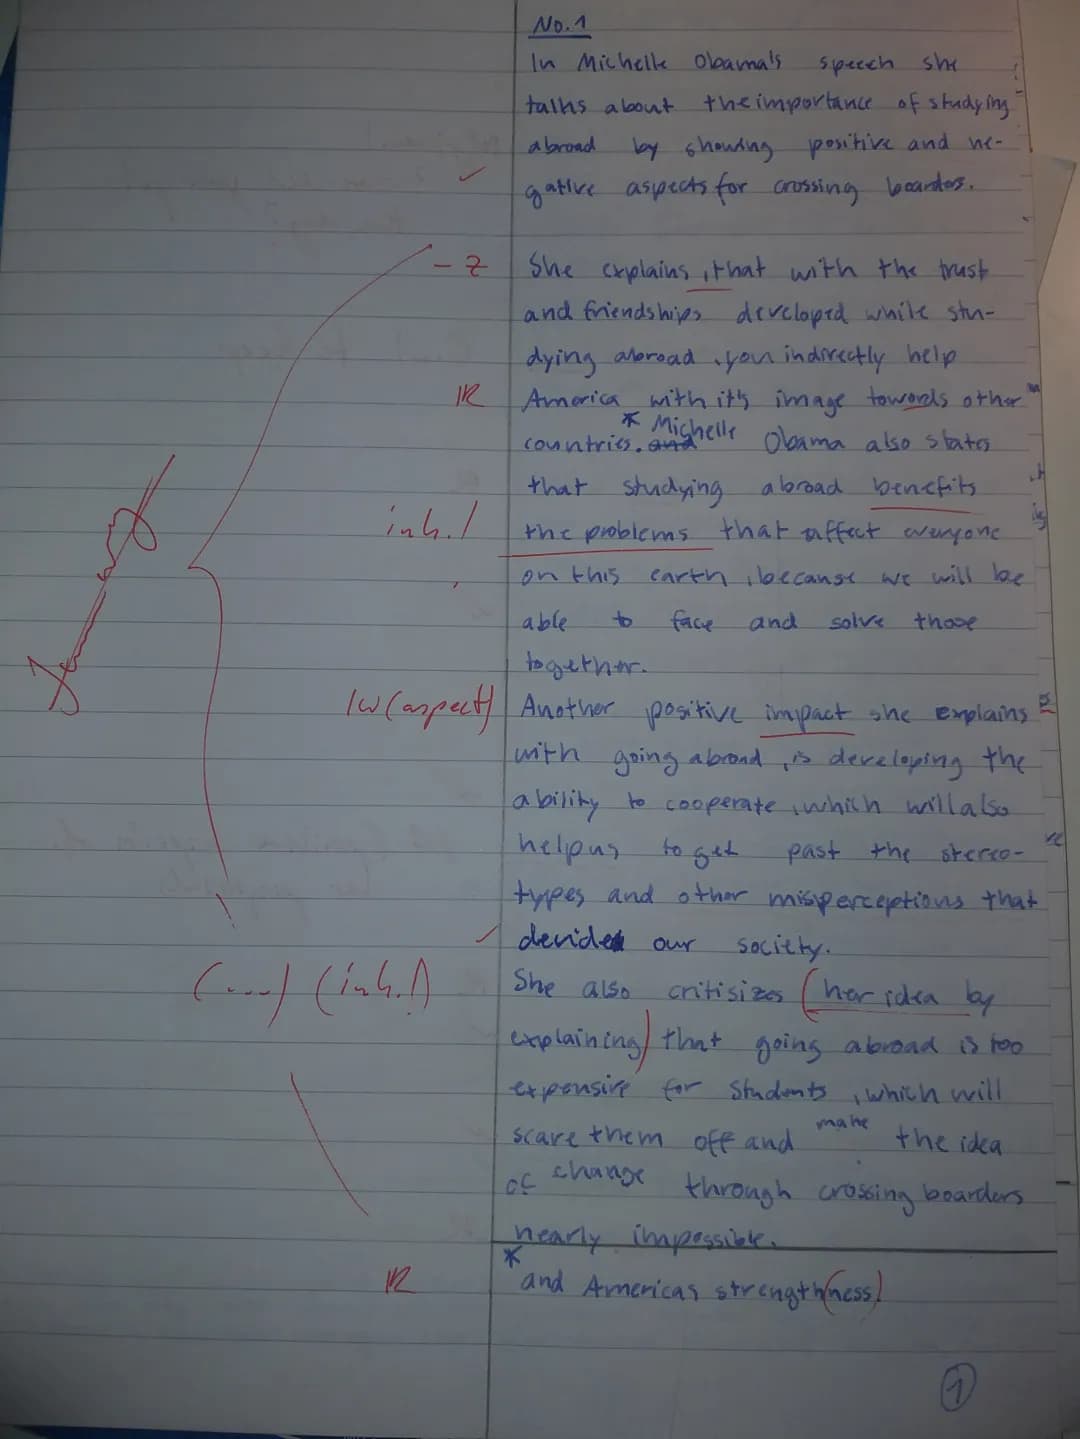 No.1
In Michelle Obama's speech she
talks about the importance of studying
abroad by showing positive and ne-
gative aspects for crossing boarders.
- Z She explains, that with the trust
and friendships developed while stu-
dying abroad, you indirectly help
R America with it's image towards other
countries. * and Michelle Obama also states
that studying abroad benefits
inh.! the problems that affect everyone
on this earth, because we will be
able to face and solve those
together.
W (aspect) Another positive impact she explains
with going abroad, is developing the
ability to cooperate, which will also
help us to get past the stereo-
types and other misperceptions that
devided our society.
(....) (inh.!) She also critisizes (her idea by
explaining) that going abroad is too
expensive for students, which will
scare them off and make the idea
of change through crossing boarders
nearly impossible.
R * and Americas strength(ness)
1